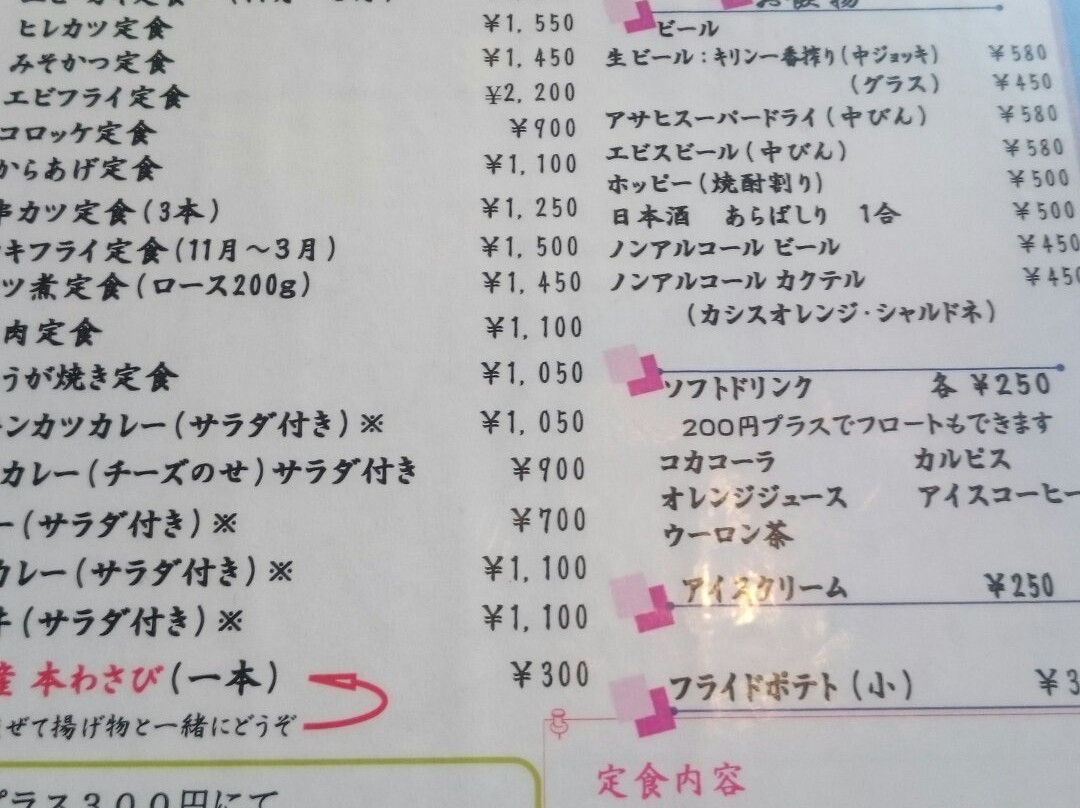 ヒレカツ定食 ¥1,550
みそかつ定食 ¥1,450
エビフライ定食 ¥2,200
コロッケ定食 ¥900
からあげ定食 ¥1,100
串カツ定食(3本) ¥1,250
キフライ定食(11月～3月) ¥1,500
ツ煮定食(ロース200g) ¥1,450
肉定食 ¥1,100
うが焼き定食 ¥1,050
ンカツカレー(サラダ付き)※ ¥1,050
カレー(チーズのせ)サラダ付き ¥900
ー(サラダ付き)※ ¥700
カレー(サラダ付き)※ ¥1,100
(サラダ付き)※ ¥1,100
産 本わさび(一本) ¥300
ぜて揚げ物と一緒にどうぞ
プラス300円にて
お飲物
ビール
生ビール：キリン一番搾り(中ジョッキ) ¥580
(グラス) ¥450
アサヒスーパードライ(中びん) ¥580
エビスビール(中びん) ¥580
ホッピー(焼酎割り) ¥500
日本酒 あらばしり 1合 ¥500
ノンアルコール ビール ¥450
ノンアルコール カクテル ¥450
(カシスオレンジ・シャルドネ)
ソフトドリンク 各 ¥250
200円プラスでフロートもできます
コカコーラ カルピス
オレンジジュース アイスコーヒー
ウーロン茶
アイスクリーム ¥250
フライドポテト(小) ¥3
定食内容